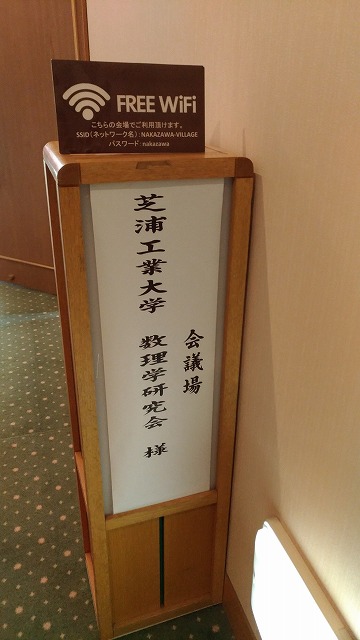 FREE WiFi
こちらの会場でご利用頂けます。
SSID(ネットワーク名):NAKAZAWA-VILLAGE
パスワード:nakazawa
会議場
芝浦工業大学 数理学研究会 様